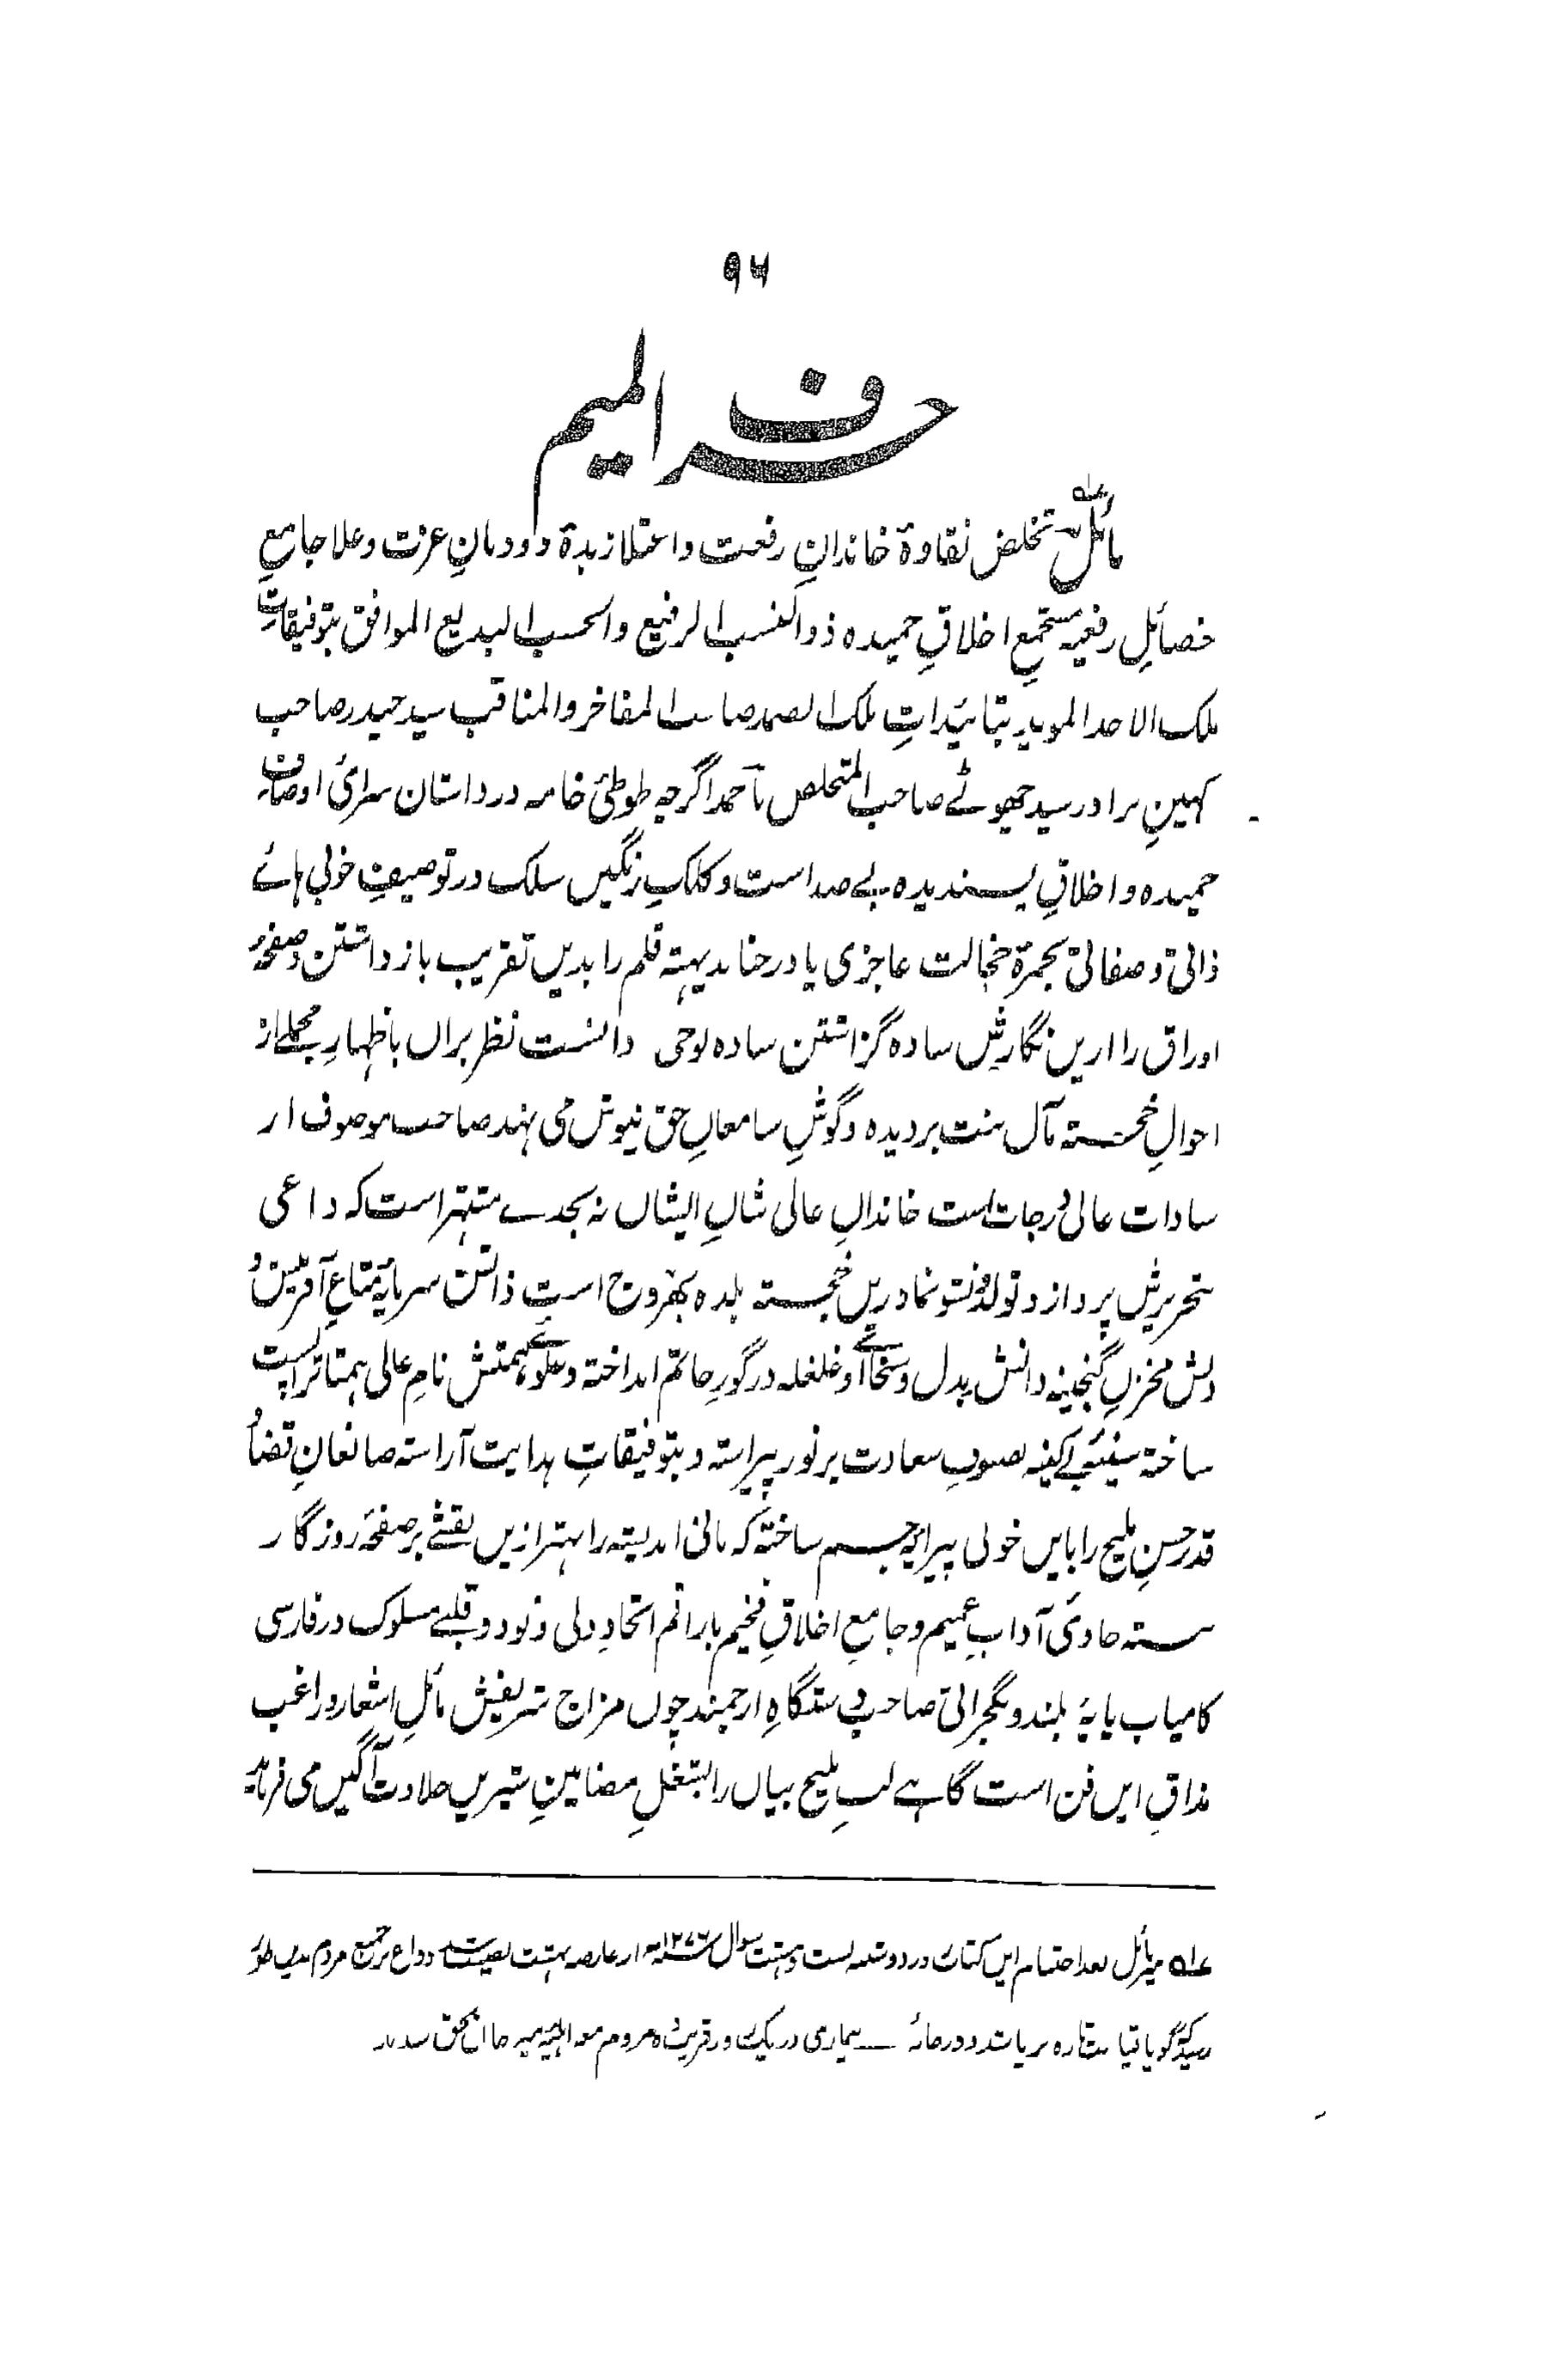 ۹۶
حرف المیم
مائل تخلص نقاوۃ خاندانِ رفعت و اعتلا زبدۃ دودمانِ عزت و علا جامعِ
خصائلِ رفیعہ مستجمعِ اخلاقِ حمیدہ ذوالنسب الرفیع والحسب البدیع الموافق بتوفیقاتِ
ملک الاحد الموید بتائیداتِ ملک الصمد صاحب المفاخر والمناقب سید حیدر صاحب
کہینِ برادر سید چھوٹے صاحب المتخلص بآحمد اگرچہ طوطئ خامہ در داستان سرائ اوصاف
حمیدہ و اخلاقِ پسندیدہ بے صداست و کلکِ رنگیں سلک در توصیفِ خوبی ہائے
ذاتی و صفاتی بحجرۃ خجالت عاجزی پا در حنا بدیہتہ قلم را بدیں تقریب باز داشتن و صفحہ
اوراق را ازیں نگارش سادہ گزاشتن سادہ لوحی دانست نظر براں باظہارِ مجملے از
احوالِ خجستہ مآل منت بر دیدہ و گوشِ سامعانِ حق نیوش می نہد صاحب موصوف از
سادات عالی درجات است خاندانِ عالی شانِ ایشاں نہ بحدے مشتہر است کہ داعی
تحریرش پردازد تولد و نشو نما دریں خجستہ بلدہ بھروچ است ذاتش سرمایۂ متاعِ آفرینش و
دلش مخزنِ گنجینہ دانش بذل و سخائے او غلغلہ در گورِ حاتم انداختہ و علوِ ہمتش نامِ عالی ہمتاں را پست
ساختہ سینۂ بے کینہ بصنوفِ سعادت پر نور پیراستہ و بتوفیقاتِ ہدایت آراستہ صانعانِ قضا و
قدر حسنِ ملیح را بایں خوبی پیرایۂ جسم ساختہ کہ مانی اندیشہ را بہتر ازیں نقشے بر صفحۂ روزگار
بستہ حاوئ آدابِ عمیم و جامعِ اخلاقِ فخیم بار اقم اتحادِ دلی و تودد قلبے مسلوک در فارسی
کامیاب پایۂ بلند و بگجراتی صاحبِ دستگاہِ ارجمند چوں مزاج شریفش مائلِ اشعار و راغب
مذاقِ ایں فن است گاہے لبِ ملیح بیاں را بشغلِ مضامینِ شیریں حلاوت آگیں می فرماید
عہ میر مائل بعد اختتام ایں کتاب در دوشنبہ بست و ہشت شوال ۱۲۷۶ھ از عارضہ